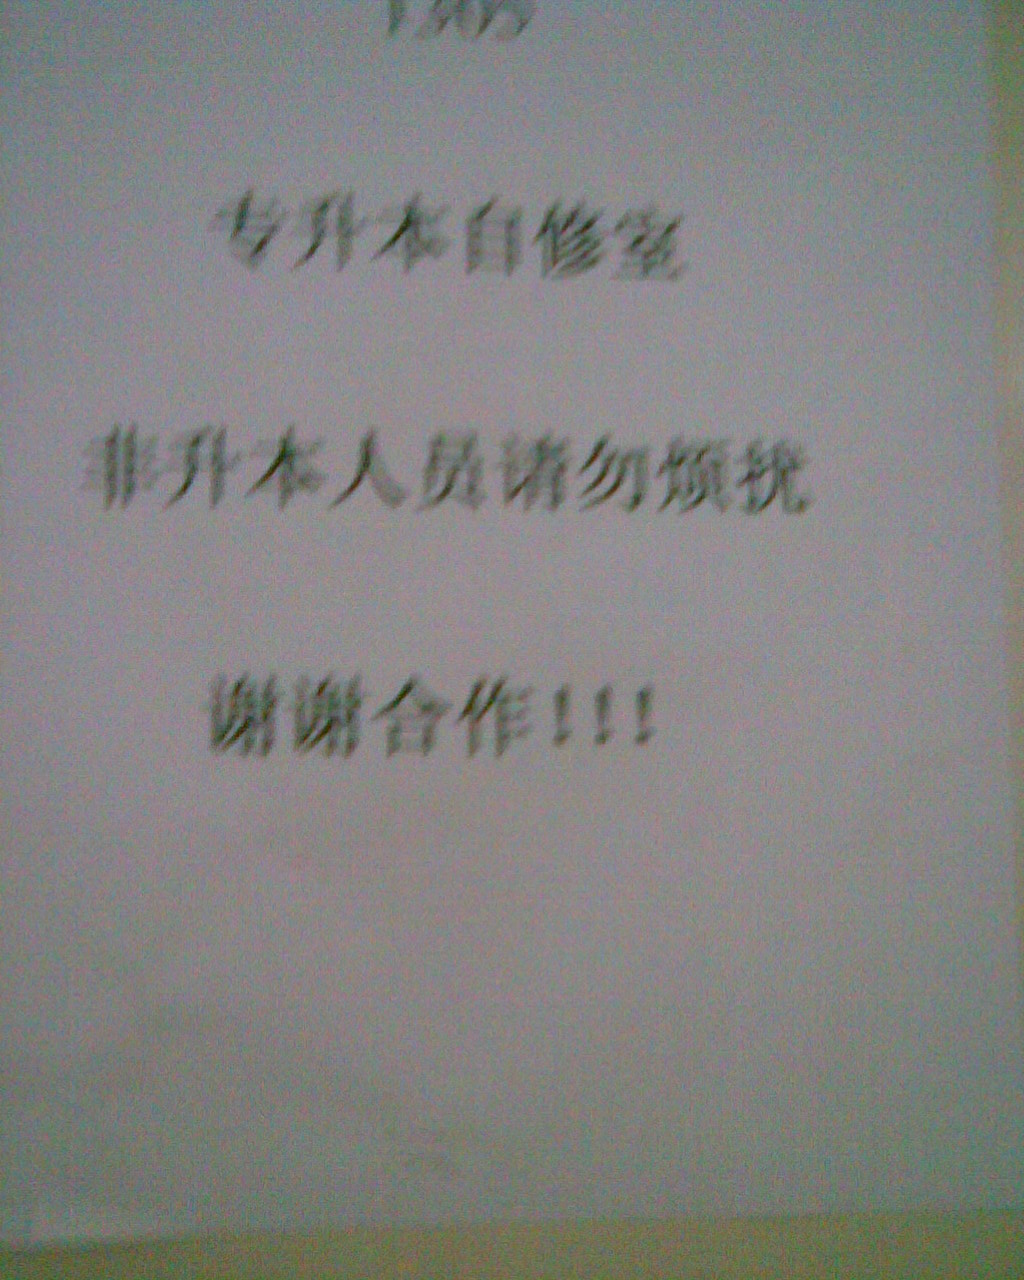 专升本自修室
非升本人员请勿烦扰
谢谢合作!!!